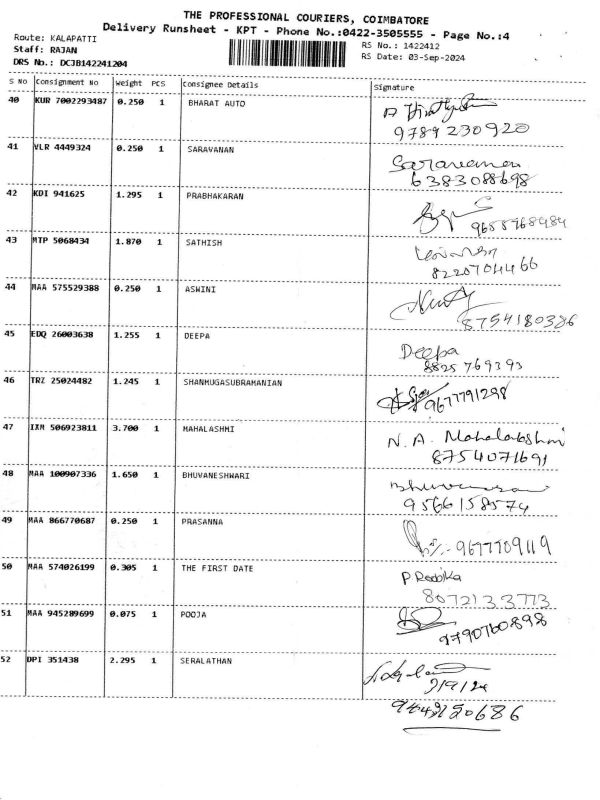 THE PROFESSIONAL COURIERS, COIMBATORE
Delivery Runsheet - KPT - Phone No.:0422-3505555 - Page No.:4
Route: KALAPATTI
RS No.: 1422412
Staff: RAJAN
RS Date: 03-Sep-2024
DRS No.: DCJB142241204
S No Consignment No Weight PCS Consignee Details Signature
40 KUR 7002293487 0.250 1 BHARAT AUTO
9789230920
41 VLR 4449324 0.250 1 SARAVANAN Saravanan
6383088698
42 KDI 941625 1.295 1 PRABHAKARAN
9688768484
43 MTP 5068434 1.870 1 SATHISH
8220704466
44 MAA 575529388 0.250 1 ASWINI
8754180386
45 EDQ 26003638 1.255 1 DEEPA Deepa
8825769393
46 TRZ 25024482 1.245 1 SHANMUGASUBRAMANIAN
9677791298
47 IXM 506923811 3.700 1 MAHALASHMI N. A. Mahalakshmi
8754071691
48 MAA 100907336 1.650 1 BHUVANESHWARI
9566158574
49 MAA 866770687 0.250 1 PRASANNA
9677709119
50 MAA 574026199 0.305 1 THE FIRST DATE P Radika
8072133773
51 MAA 945289699 0.075 1 POOJA
9790760898
52 DPI 351438 2.295 1 SERALATHAN